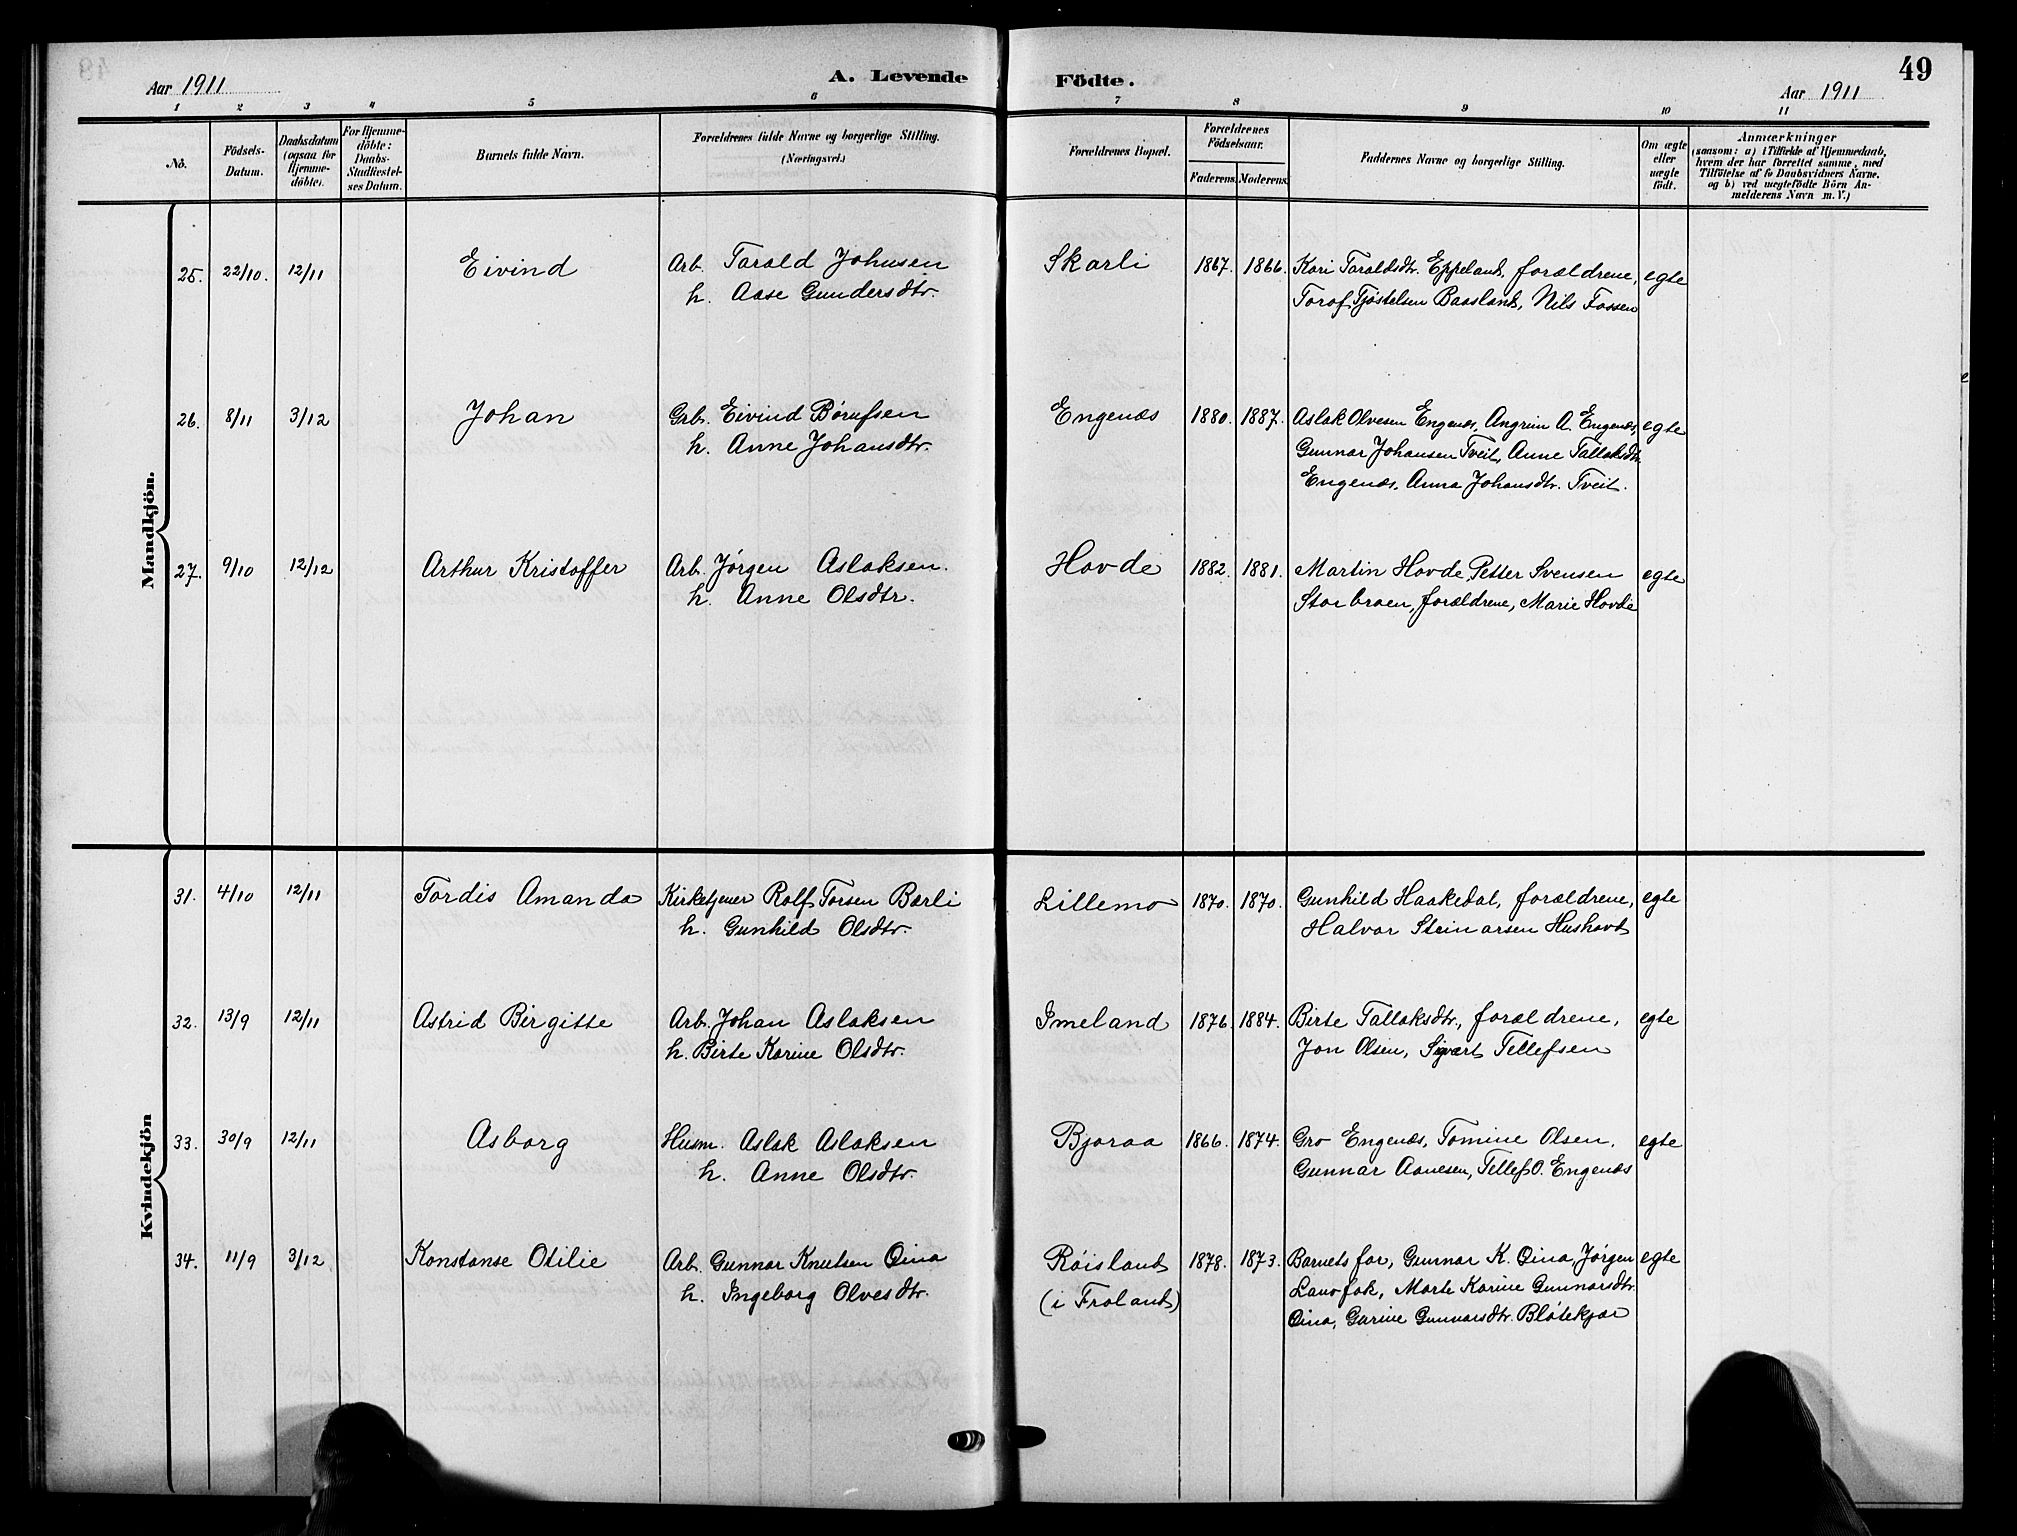 49
Aar 1911
A. Levende Födte.
Aar 1911
1 2 3 4 5 6 7 8 9 10 11
Nô.
Födsels-
Datum.
Daabsdatum
(ogsaa for
Hjemme-
döbte).
For Hjemme-
döbte:
Daabs-
Stadfæstel-
ses Datum.
Barnets fulde Navn.
Forældrenes fulde Navne og borgerlige Stilling.
(Næringsvei.)
Forældrenes Bopæl.
Forældrenes
Födselsaar.
Faderens. Moderens.
Faddernes Navne og borgerlige Stilling.
Om ægte
eller
uægte
født.
Anmærkninger
(saasom: a) i Tilfælde af Hjemmedaab,
hvem der har forrettet samme, med
Tilföielse af to Daabsvidners Navne,
og b) ved uægtefödte Börn An-
melderens Navn m. V.)
Mandkjön.
25. 22/10. 12/11 Eivind Arb. Tarald Johnsen Skarli 1867. 1866. Kari Taraldsdtr. Eppeland, forældrene, egte
h. Aase Gundersdtr. Torof Tjøstelsen Baasland, Nils Fossen
26. 8/11 3/12 Johan Grb. Eivind Børufsen Engenæs 1880. 1887. Aslak Olvesen Engenæs, Angrim A. Engenæs, egte
h. Anne Johansdtr. Gunnar Johansen Tveit, Anne Tallaksdtr.
Engenæs, Anna Johansdtr. Tveit.
27. 9/10 12/12 Arthur Kristoffer Arb. Jørgen Aslaksen. Hovde 1882. 1881. Martin Hovde, Petter Svensen egte
h. Anne Olsdtr. Storbroen, forældrene, Marie Hovde
Kvindekjön
31. 4/10 12/11 Tordis Amanda Kirketjener Rolf Torsen Bærli Lillemo 1870. 1870. Gunhild Haakedal, forældrene, egte
h. Gunhild Olsdtr. Halvor Steinarsen Hushovd
32. 13/9 12/11 Astrid Birgitte Arb. Johan Aslaksen Imeland 1876. 1884. Birte Tallaksdtr., forældrene, egte
h. Birte Karine Olsdtr. Jon Olsen, Sigvart Tellefsen
33. 30/9 12/11 Asborg Husm. Aslak Aslaksen Bjoraa 1866. 1874. Gro Engenæs, Tomine Olsen, egte
h. Anne Olsdtr. Gunnar Aanesen, Tellef O. Engenæs
34. 11/9 3/12 Konstanse Otilie Arb. Gunnar Knutsen Oina Røisland 1878. 1873. Barnets far, Gunnar K. Oina, Jørgen egte
h. Ingeborg Olvesdtr. (i Froland) Lauvfak, Marte Karine Gunnarsdtr.
Oina, Garine Gunnarsdtr. Bløtekjær